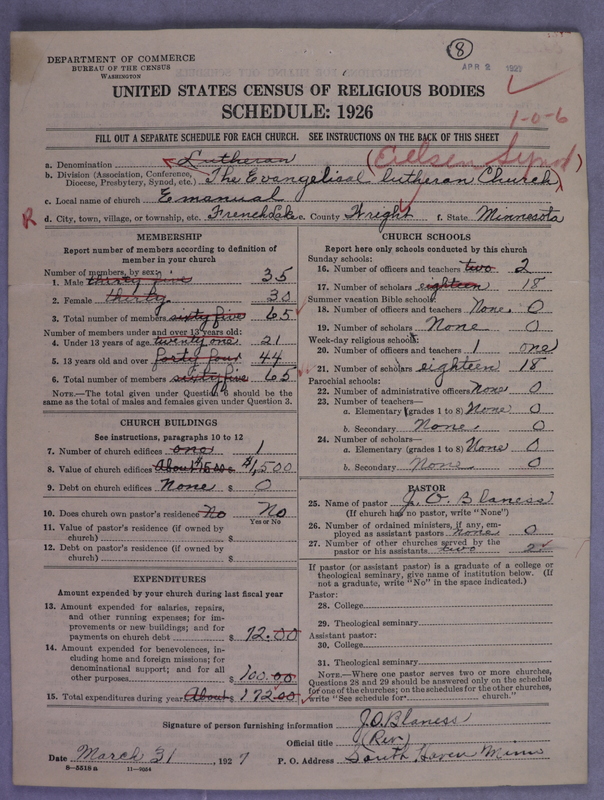 (8)
APR 2 1927
DEPARTMENT OF COMMERCE
BUREAU OF THE CENSUS
WASHINGTON
UNITED STATES CENSUS OF RELIGIOUS BODIES
SCHEDULE: 1926
1-0-6
FILL OUT A SEPARATE SCHEDULE FOR EACH CHURCH. SEE INSTRUCTIONS ON THE BACK OF THIS SHEET
a. Denomination Lutheran (Eielsen Synod)
b. Division (Association, Conference, Diocese, Presbytery, Synod, etc.) The Evangelisal Lutheran Church
c. Local name of church Emanual
R d. City, town, village, or township, etc. French Lake e. County Wright f. State Minnesota
MEMBERSHIP
Report number of members according to definition of
member in your church
Number of members, by sex:
1. Male thirty five 35
2. Female thirty 30
3. Total number of members sixty five 65
Number of members under and over 13 years old:
4. Under 13 years of age twenty one 21
5. 13 years old and over forty four 44
6. Total number of members sixty five 65
NOTE.—The total given under Question 6 should be the
same as the total of males and females given under Question 3.
CHURCH BUILDINGS
See instructions, paragraphs 10 to 12
7. Number of church edifices one 1
8. Value of church edifices About $1500 $1,500
9. Debt on church edifices None $ 0
10. Does church own pastor's residence No No
Yes or No
11. Value of pastor's residence (if owned by
church) $
12. Debt on pastor's residence (if owned by
church) $
EXPENDITURES
Amount expended by your church during last fiscal year
13. Amount expended for salaries, repairs,
and other running expenses; for im-
provements or new buildings; and for
payments on church debt $ 72.00
14. Amount expended for benevolences, in-
cluding home and foreign missions; for
denominational support; and for all
other purposes $ 100.00
15. Total expenditures during year About $ 172.00
CHURCH SCHOOLS
Report here only schools conducted by this church
Sunday schools:
16. Number of officers and teachers two 2
17. Number of scholars eighteen 18
Summer vacation Bible schools:
18. Number of officers and teachers None. 0
19. Number of scholars None 0
Week-day religious schools:
20. Number of officers and teachers 1 one
21. Number of scholars eighteen 18
Parochial schools:
22. Number of administrative officers None 0
23. Number of teachers—
a. Elementary (grades 1 to 8) None 0
b. Secondary None. 0
24. Number of scholars—
a. Elementary (grades 1 to 8) None 0
b. Secondary None 0
PASTOR
25. Name of pastor J. O. Blaness
(If church has no pastor, write "None")
26. Number of ordained ministers, if any, em-
ployed as assistant pastors none 0
27. Number of other churches served by the
pastor or his assistants two 2
If pastor (or assistant pastor) is a graduate of a college or
theological seminary, give name of institution below. (If
not a graduate, write "No" in the space indicated.)
Pastor:
28. College
29. Theological seminary
Assistant pastor:
30. College
31. Theological seminary
NOTE.—Where one pastor serves two or more churches,
Questions 28 and 29 should be answered only on the schedule
for one of the churches; on the schedules for the other churches,
write "See schedule for church."
Signature of person furnishing information J. O. Blaness
Official title (Rev)
Date March 31, 1927 P. O. Address South Haven Minn
8—5518 a 11—9064